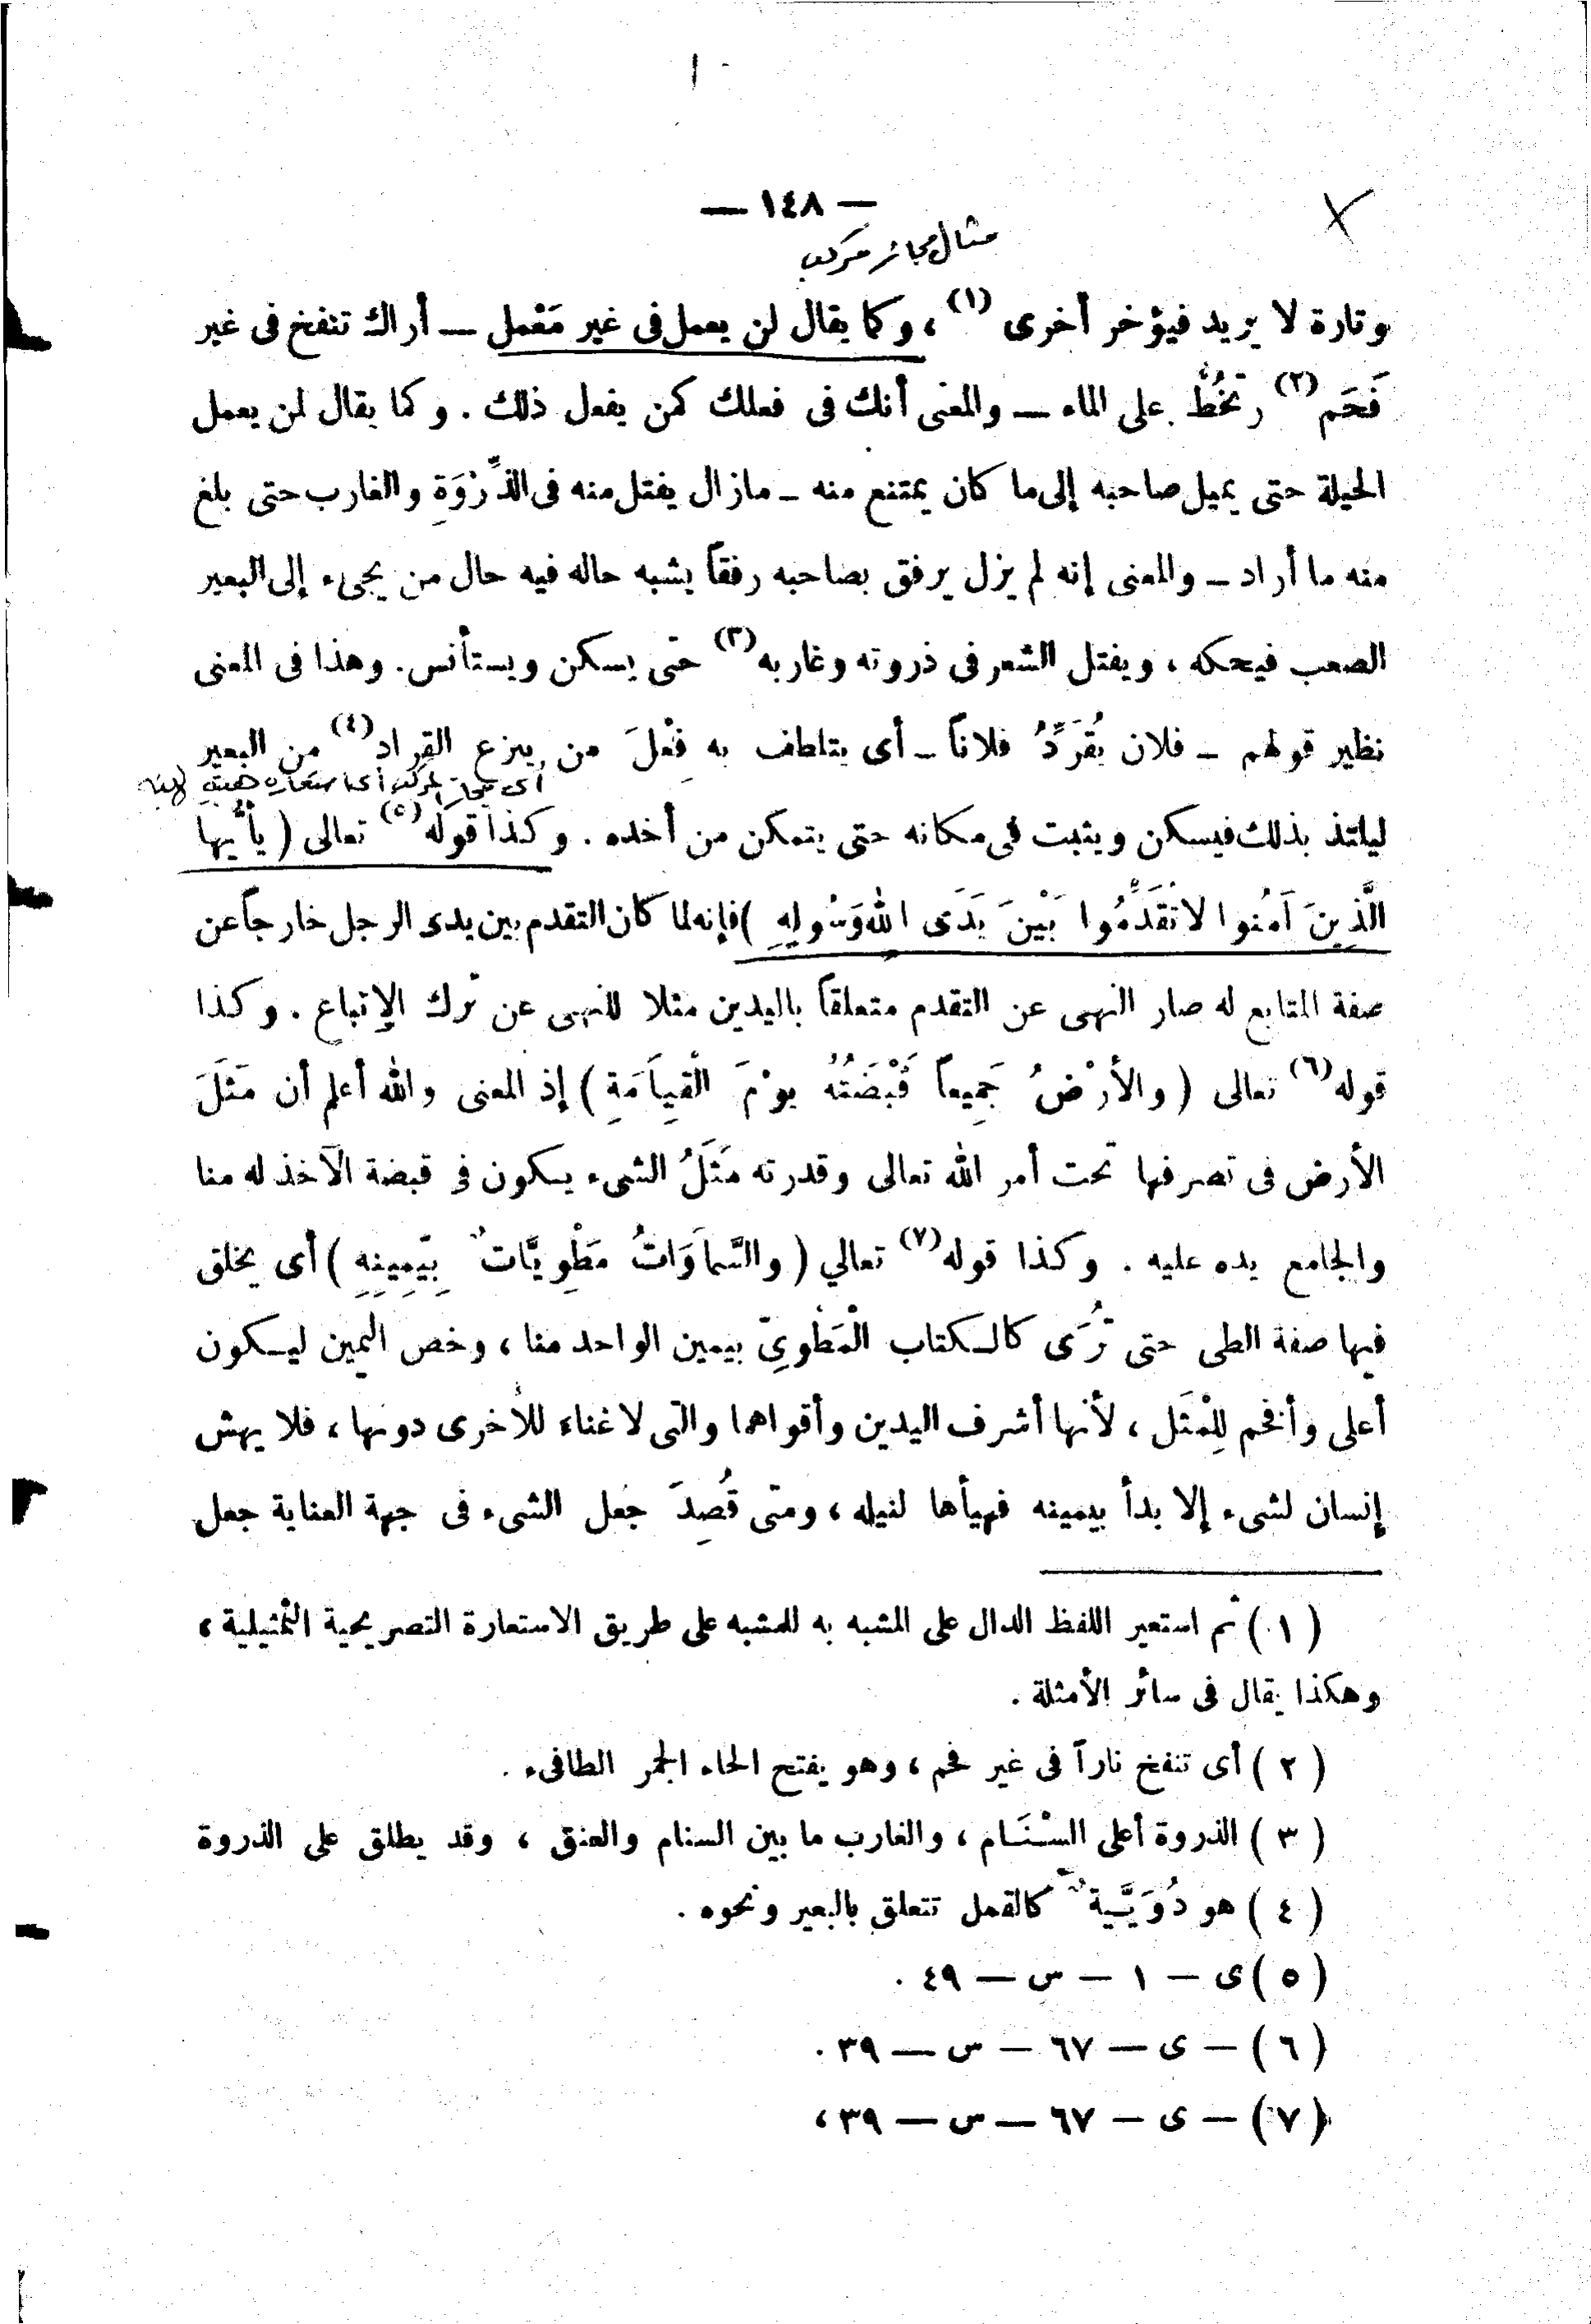 — ١٤٨ —
مثال مجاز مركب
وتارة لا يريد فيؤخر أخرى (١) ، وكما يقال لمن يعمل فى غير مَعْمل — أراك تنفخ فى غير
فَحَم (٢) وتَخُطُّ على الماء — والمعنى أنك فى فعلك كمن يفعل ذلك . وكما يقال لمن يعمل
الحيلة حتى يميل صاحبه إلى ما كان يمتنع منه — مازال يفتل منه فى الذِّرْوَةِ والغارب حتى بلغ
منه ما أراد — والمعنى إنه لم يزل يرفق بصاحبه رفقاً يشبه حاله فيه حال من يجىء إلى البعير
الصعب فيحكه ، ويفتل الشعر فى ذروته وغاربه (٣) حتى يسكن ويستأنس . وهذا فى المعنى
نظير قولهم — فلان يُقَرِّدُ فلاناً — أى يتلطف به فِعْلَ من ينزع القراد (٤) من البعير
أى مجاز المركب أى استعارة هيئة لهيئة
ليلتذ بذلك فيسكن ويثبت فى مكانه حتى يتمكن من أخده . وكذا قوله (٥) تعالى ( يأَيُّها
الَّذِينَ آمَنُوا لاتُقَدِّمُوا بَيْنَ يَدَى اللهِ وَرَسُولِهِ ) فإنه لما كان التقدم بين يدى الرجل خارجاً عن
صفة المتابع له صار النهى عن التقدم متعلقاً باليدين مثلا للنهى عن ترك الإتباع . وكذا
قوله (٦) تعالى ( والأرْضُ جَمِيعاً قَبْضَتُهُ يوْمَ الْقِيَامَةِ ) إذ المعنى والله أعلم أن مَثَلَ
الأرض فى تصرفها تحت أمر الله تعالى وقدرته مَثَلُ الشىء يكون فى قبضة الآخذ له منا
والجامع يده عليه . وكذا قوله (٧) تعالي ( والسَّماوَاتُ مَطْوِيَّاتٌ بِيَمِينِهِ ) أى يخلق
فيها صفة الطى حتى تُرَى كالكتاب الْمَطْوِىّ بيمين الواحد منا ، وخص اليمين ليكون
أعلى وأفخم لِلْمَثَل ، لأنها أشرف اليدين وأقواهما والتى لا غناء للأخرى دونها ، فلا يهش
إنسان لشىء إلا بدأ بيمينه فهيأها لنيله ، ومتى قُصِدَ جعل الشىء فى جهة العناية جعل
(١) ثم استعير اللفظ الدال على المشبه به للمشبه على طريق الاستعارة التصريحية التمثيلية ،
وهكذا يقال فى سائر الأمثلة .
( ٢ ) أى تنفخ ناراً فى غير فحم ، وهو بفتح الحاء الجمر الطافىء .
( ٣ ) الذروة أعلى السَّنَام ، والغارب ما بين السنام والعنق ، وقد يطلق على الذروة
( ٤ ) هو دُوَيْبَّة كالقمل تتعلق بالبعير ونحوه .
( ٥ ) ى — ١ — س — ٤٩ .
( ٦ ) — ى — ٦٧ — س — ٣٩ .
( ٧ ) — ى — ٦٧ — س — ٣٩ ،